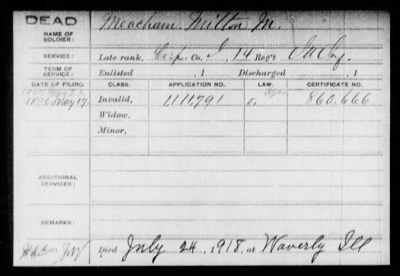 DEAD
NAME OF SOLDIER: Meacham, Milton M.
SERVICE: Late rank, Corp. Co. I, 14 Reg't
TERM OF SERVICE: Enlisted , 1 Discharged , 1
DATE OF FILING. CLASS. APPLICATION NO. LAW. CERTIFICATE NO.
1892 May 17 Invalid, 1,111,791 860.666
Widow,
Minor,
ADDITIONAL SERVICES:
REMARKS:
Died July 24, 1918, at Waverly Ill